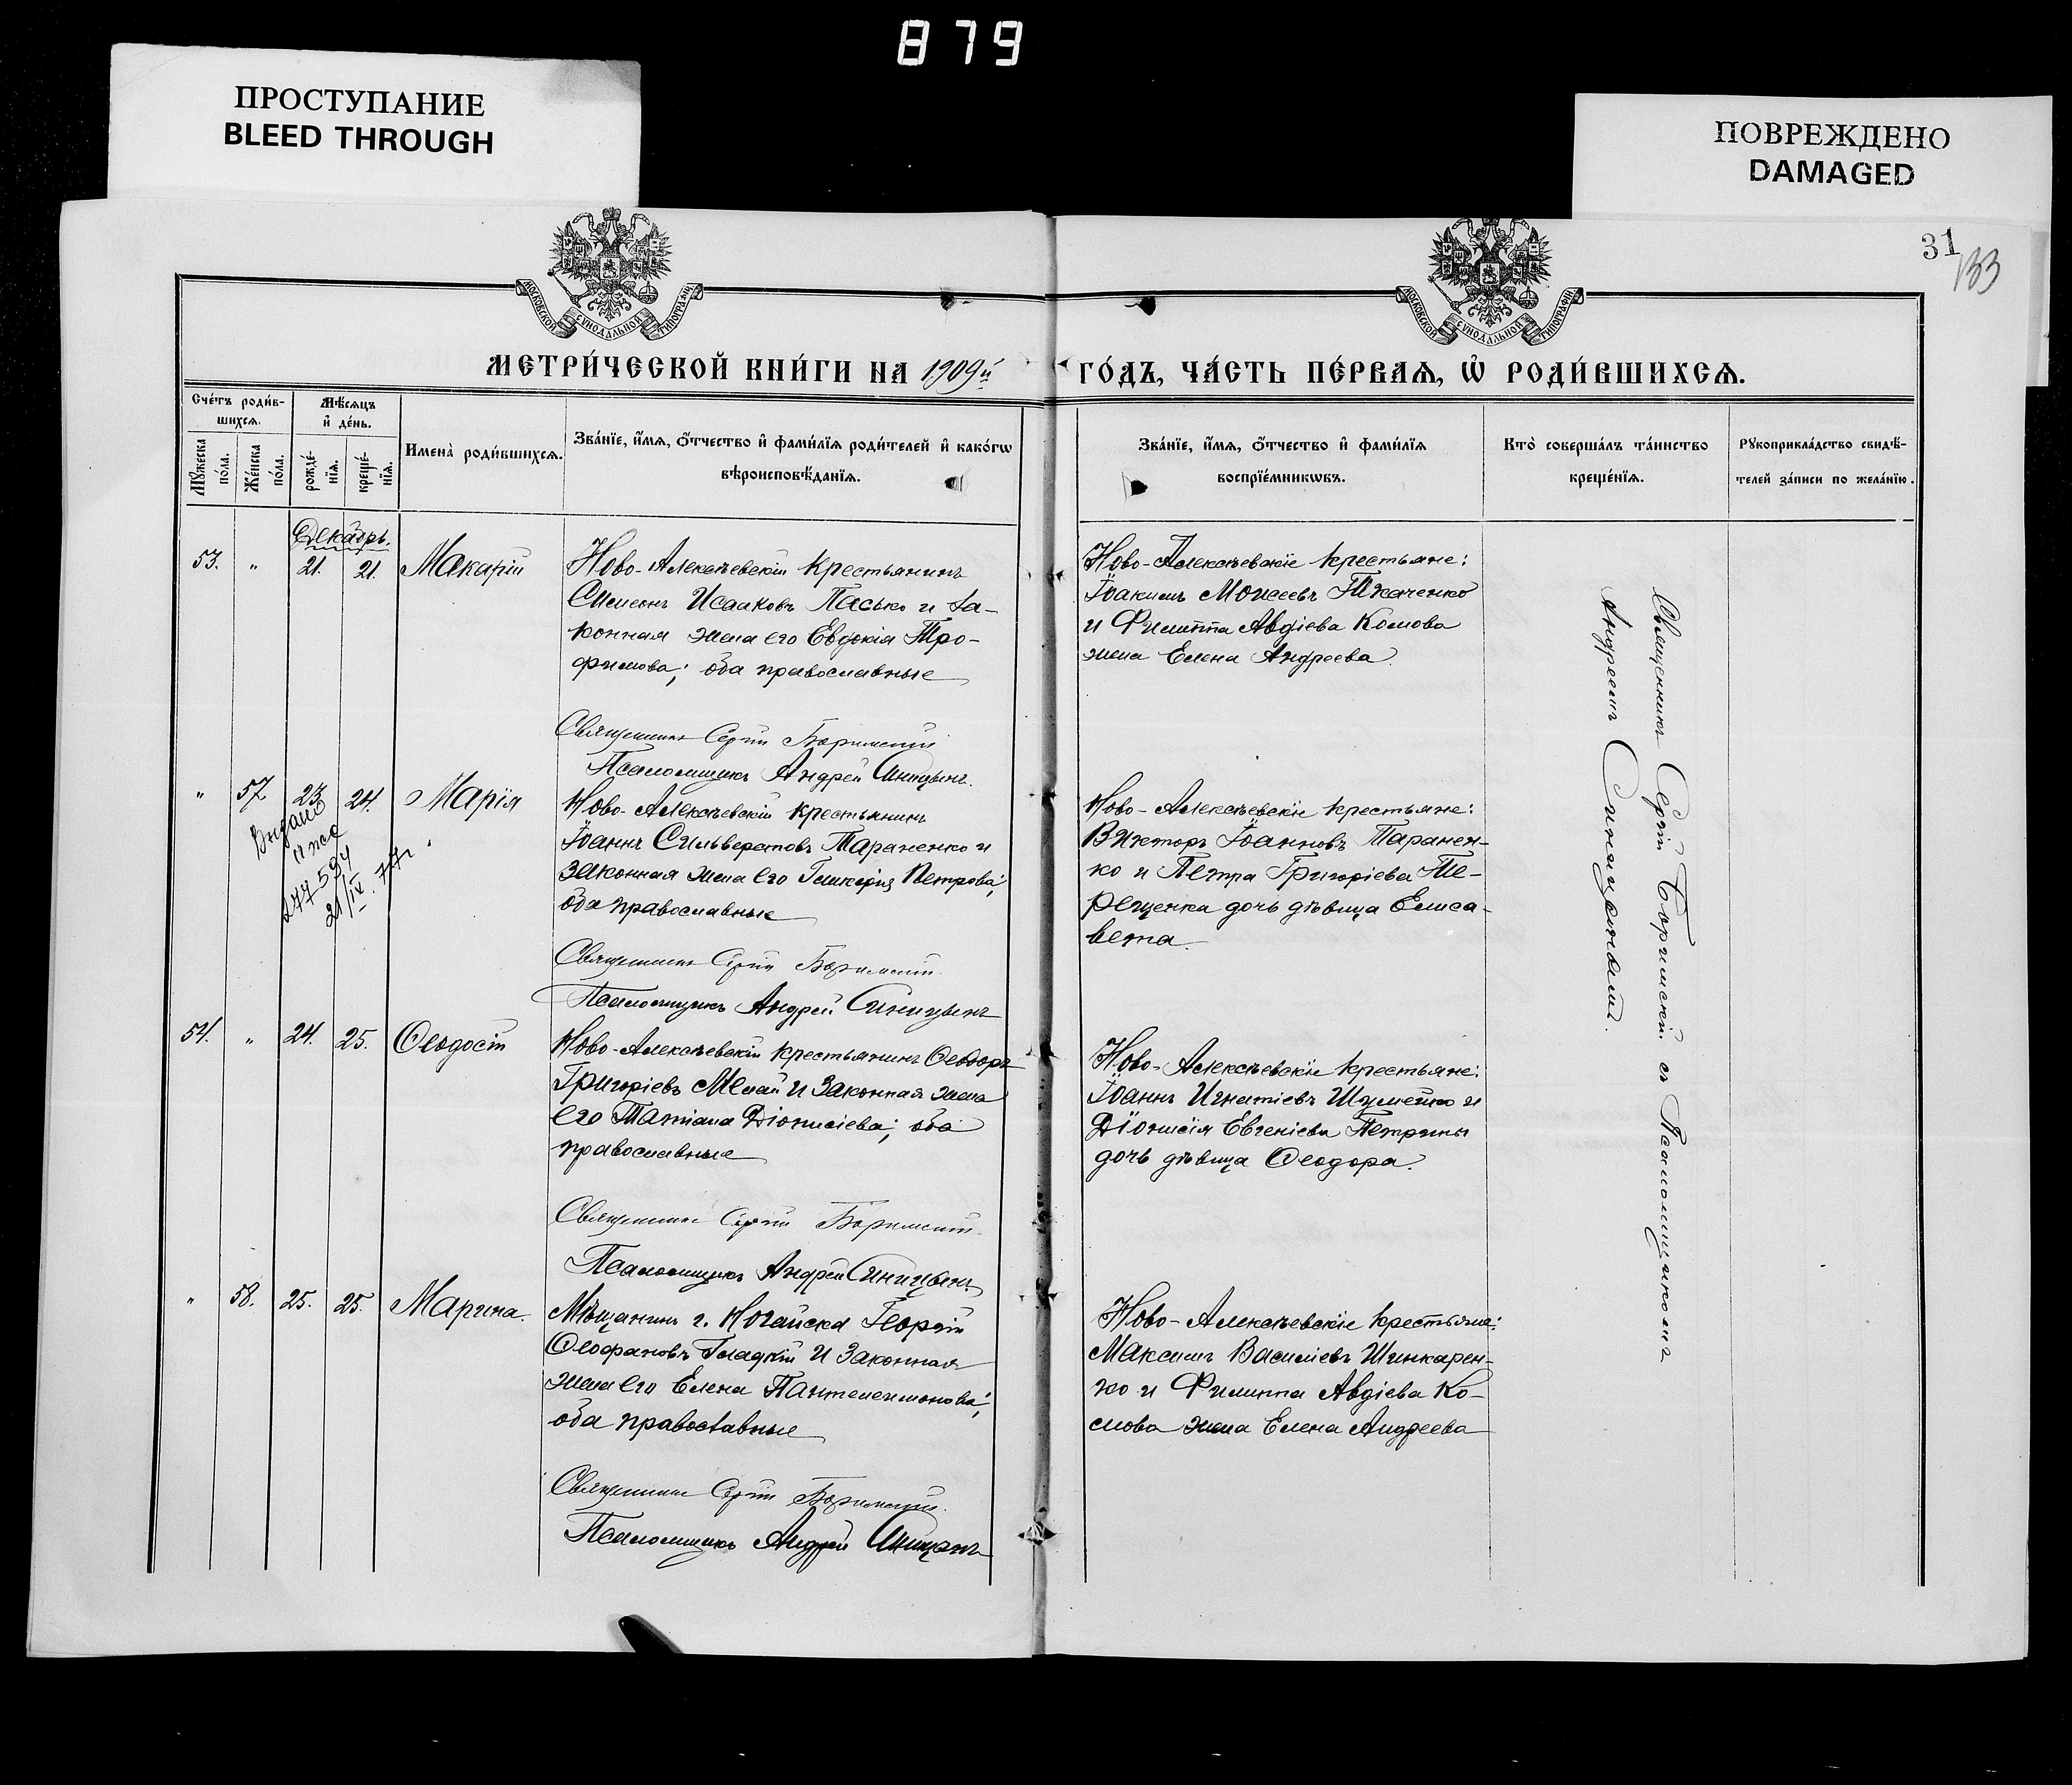 879
ПРОСТУПАНИЕ
BLEED THROUGH
ПОВРЕЖДЕНО
DAMAGED
31
133
МОСКОВСКОЙ СУНОДАЛЬНОЙ ТИПОГРАФІИ
МОСКОВСКОЙ СУНОДАЛЬНОЙ ТИПОГРАФІИ
МЕТРИ́ЧЕСКОЙ КНИ́ГИ НА 1909й ГО́ДЪ, ЧА́СТЬ ПЕ́РВАЯ, Ѡ РОДИ́ВШИХСЯ.
Сче́тъ роди́в-
шихся.
Мꙋжеска по́ла.
Же́нска по́ла.
Мѣ́сяцъ
и де́нь.
рожде́-
нїя.
креще́-
нїя.
Имена̀ роди́вшихся.
Зва́нїе, и́мя, ѻ́тчество и фами́лїя роди́телей и како́гѡ
вѣроисповѣ́данїя.
Зва́нїе, и́мя, ѻ́тчество и фами́лїя
воспрїе́мникѡвъ.
Кто̀ соверша́лъ та́инство
креще́нїя.
Рꙋкоприкла́дство свидѣ́-
телей за́писи по жела́нїю.
Декабрь.
53. " 21. 21. Макарій
Ново-Алексѣевскій крестьянинъ
Симеонъ Исааковъ Пасько и за-
конная жена его Евдокія Тро-
фимова; оба православные
Священникъ Сергій
Псаломщикъ Андрей Синицынъ.
Ново-Алексѣевскіе крестьяне:
Іоакимъ Моисеевъ Ткаченко
и Филиппа Авдіева Комова
жена Елена Андреева.
" 57 23 24. Марія
277594
21/IV. 77г.
Ново-Алексѣевскій крестьянинъ
Іоаннъ Сильвестровъ Тараненко и
законная жена его Гликерія Петрова;
оба православные
Священникъ Сергій
Псаломщикъ Андрей Синицынъ
Ново-Алексѣевскіе крестьяне:
Викторъ Іоанновъ Таранен-
ко и Петра Григоріева Те-
рещенка дочь дѣвица Елиса-
вета.
54. " 24. 25. Ѳеодосій
Ново-Алексѣевскій крестьянинъ Ѳеодоръ
Григоріевъ и законная жена
его Татіана Діонисіева; оба
православные
Священникъ Сергій
Псаломщикъ Андрей Синицынъ
Ново-Алексѣевскіе крестьяне:
Іоаннъ Игнатіевъ и
Діонисія Евгеніева Петрины
дочь дѣвица Ѳеодора.
" 58. 25. 25. Марина.
Мѣщанинъ г. Ногайска Георгій
Ѳеофановъ Гладкій и законная
жена его Елена Пантелеимонова;
оба православные
Священникъ Сергій
Псаломщикъ Андрей Синицынъ
Ново-Алексѣевскіе крестьяне:
Максимъ Василіевъ Шинкарен-
ко и Филиппа Авдіева Ко-
мова жена Елена Андреева
Священникъ Сергій съ Псаломщикомъ
Андреемъ Синицынымъ.